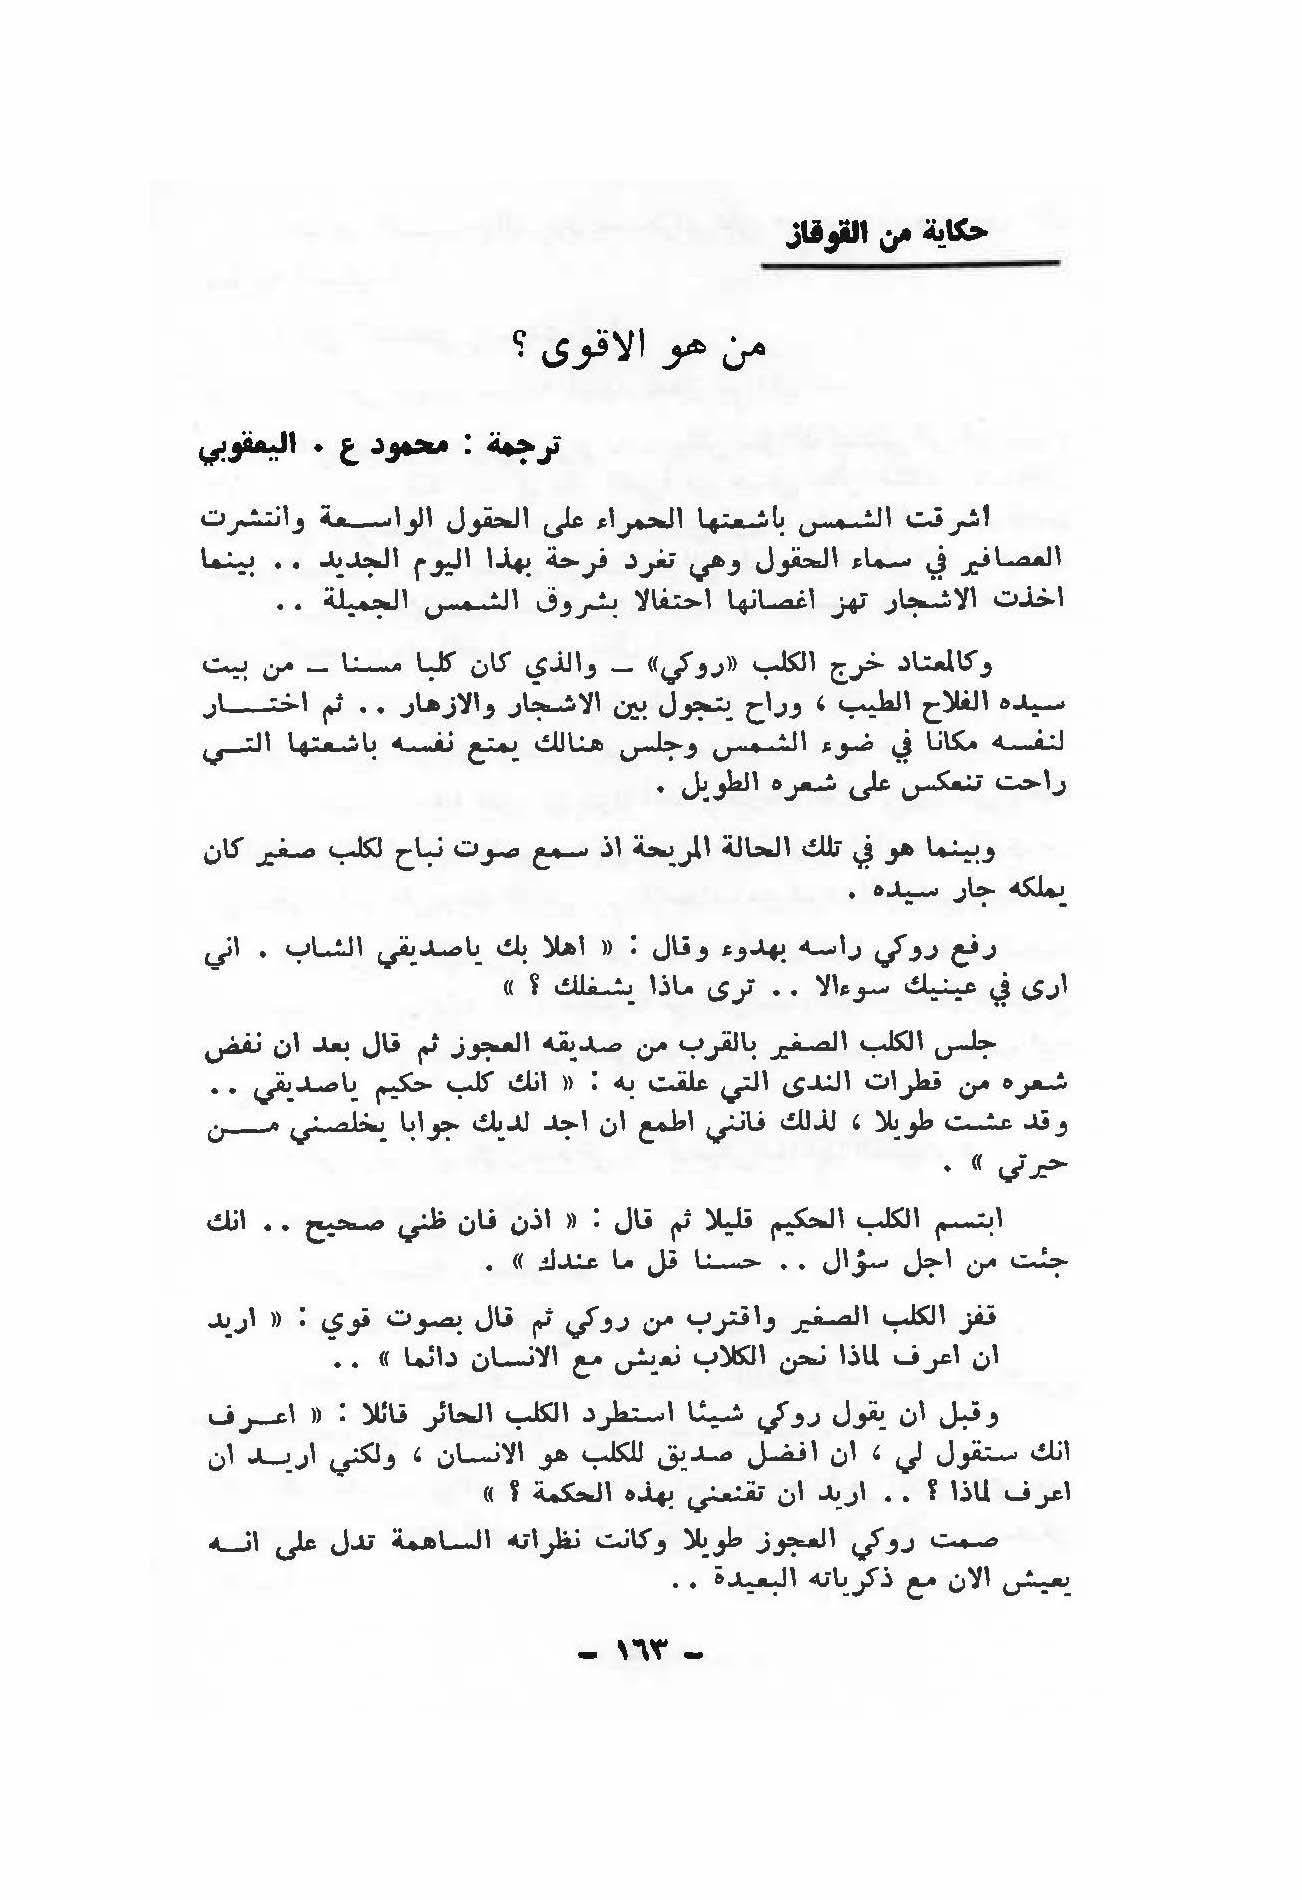 حكاية من القوقاز
من هو الاقوى ؟
ترجمة : محمود ع . اليعقوبي
اشرقت الشمس باشعتها الحمراء على الحقول الواسعة وانتشرت
العصافير في سماء الحقول وهي تغرد فرحة بهذا اليوم الجديد .. بينما
اخذت الاشجار تهز اغصانها احتفالا بشروق الشمس الجميلة ..
وكالمعتاد خرج الكلب «روكي» – والذي كان كلبا مسنا – من بيت
سيده الفلاح الطيب ، وراح يتجول بين الاشجار والازهار .. ثم اختار
لنفسه مكانا في ضوء الشمس وجلس هنالك يمتع نفسه باشعتها التي
راحت تنعكس على شعره الطويل .
وبينما هو في تلك الحالة المريحة اذ سمع صوت نباح لكلب صغير كان
يملكه جار سيده .
رفع روكي راسه بهدوء وقال : « اهلا بك ياصديقي الشاب . اني
ارى في عينيك سوءالا .. ترى ماذا يشغلك ؟ »
جلس الكلب الصغير بالقرب من صديقه العجوز ثم قال بعد ان نفض
شعره من قطرات الندى التي علقت به : « انك كلب حكيم ياصديقي ..
وقد عشت طويلا ، لذلك فانني اطمع ان اجد لديك جوابا يخلصني من
حيرتي » .
ابتسم الكلب الحكيم قليلا ثم قال : « اذن فان ظني صحيح .. انك
جئت من اجل سؤال .. حسنا قل ما عندك » .
قفز الكلب الصغير واقترب من روكي ثم قال بصوت قوي : « اريد
ان اعرف لماذا نحن الكلاب نعيش مع الانسان دائما » ..
وقبل ان يقول روكي شيئا استطرد الكلب الحائر قائلا : « اعرف
انك ستقول لي ، ان افضل صديق للكلب هو الانسان ، ولكني اريد ان
اعرف لماذا ؟ .. اريد ان تقنعني بهذه الحكمة ؟ »
صمت روكي العجوز طويلا وكانت نظراته الساهمة تدل على انه
يعيش الان مع ذكرياته البعيدة ..
– ١٦٣ –